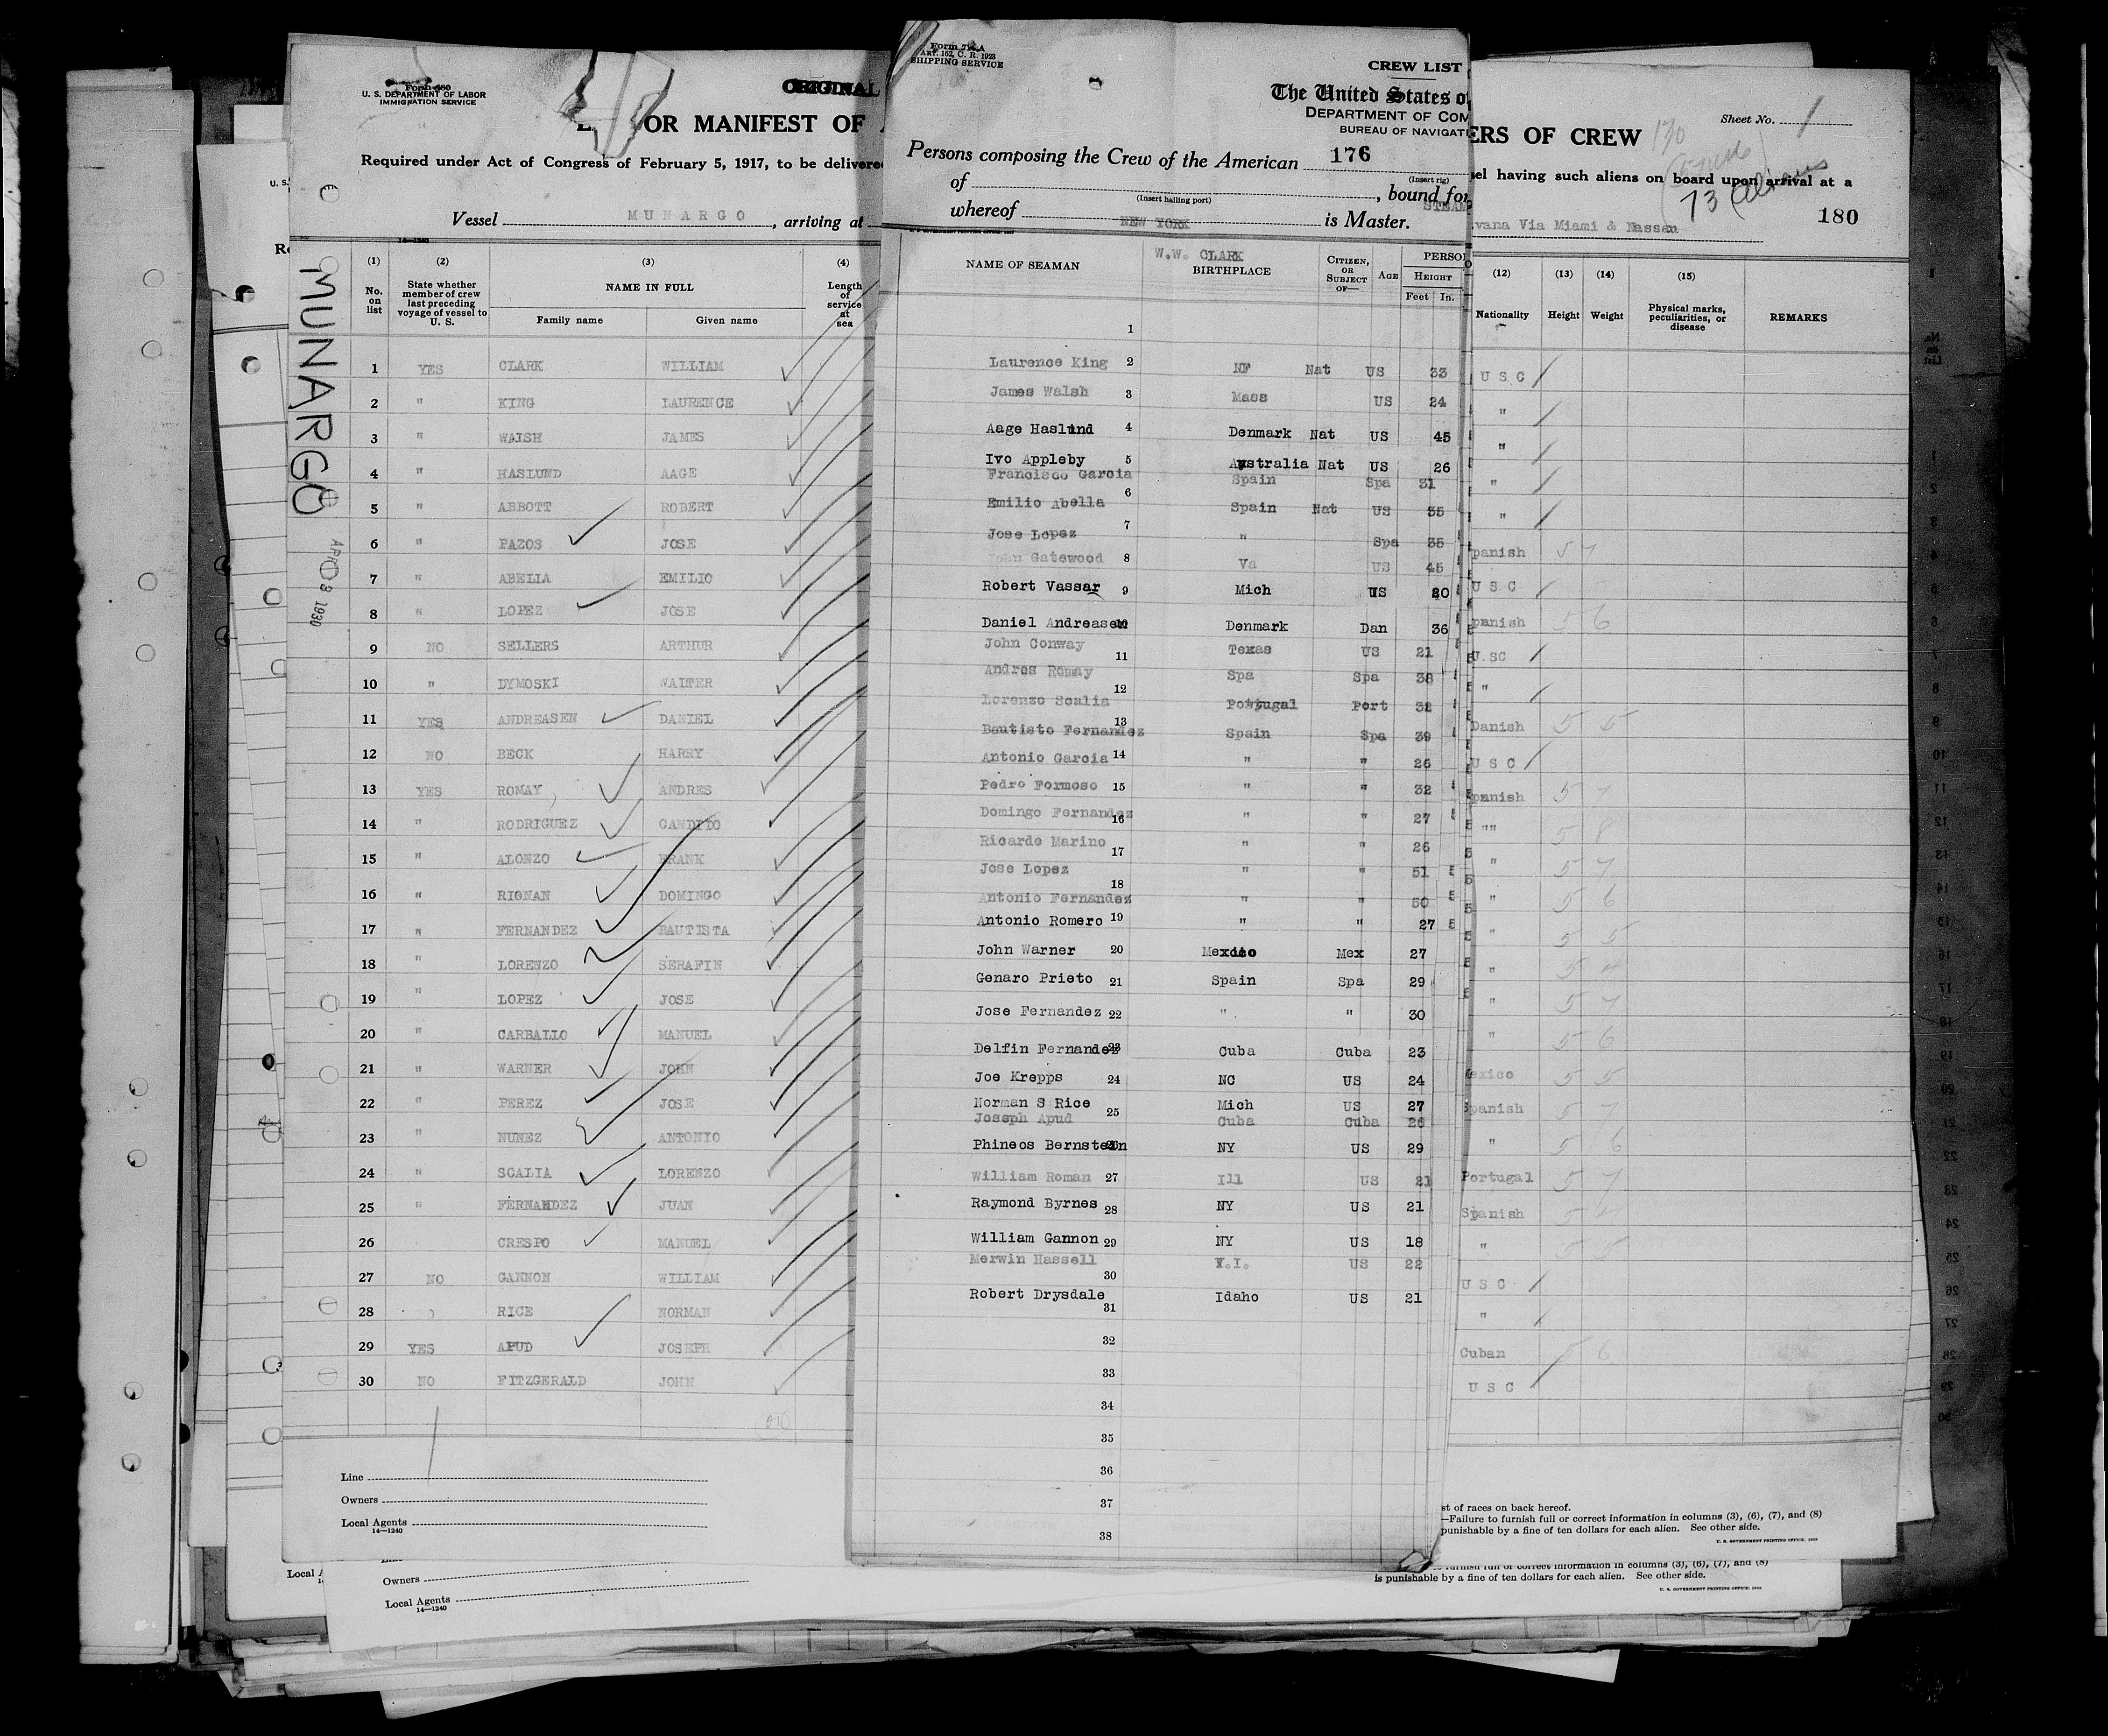 Form 680
U. S. DEPARTMENT OF LABOR
IMMIGRATION SERVICE
ORIGINAL
OR MANIFEST OF
Required under Act of Congress of February 5, 1917, to be delivered
Vessel MUNARGO, arriving at
14—1240
MUNARGO
APR 8 1930
(1) (2) (3) (4)
No. on list
State whether member of crew last preceding voyage of vessel to U. S.
NAME IN FULL
Family name Given name
Length of service at sea
1 YES CLARK WILLIAM
2 " KING LAURENCE
3 " WALSH JAMES
4 " HASLUND AAGE
5 " ABBOTT ROBERT
6 " PAZOS JOSE
7 " ABELLA EMILIO
8 " LOPEZ JOSE
9 NO SELLERS ARTHUR
10 " DYMOSKI WALTER
11 YES ANDREASEN DANIEL
12 NO BECK HARRY
13 YES ROMAY ANDRES
14 " RODRIGUEZ CANDIDO
15 " ALONZO FRANK
16 " RIGNAN DOMINGO
17 " FERNANDEZ BAUTISTA
18 " LORENZO SERAFIN
19 " LOPEZ JOSE
20 " CARBALLO MANUEL
21 " WARNER JOHN
22 " PEREZ JOSE
23 " NUNEZ ANTONIO
24 " SCALIA LORENZO
25 " FERNANDEZ JUAN
26 CRESPO MANUEL
27 NO GANNON WILLIAM
28 RICE NORMAN
29 YES APUD JOSEPH
30 NO FITZGERALD JOHN
Line
Owners
Local Agents
14—1240
Owners
Local Agents
14—1240
ART. 162, C. R. 1923
SHIPPING SERVICE
CREW LIST
The United States o
DEPARTMENT OF COM
BUREAU OF NAVIGATI
Persons composing the Crew of the American 176
(Insert rig)
of , bound for
(Insert hailing port)
STEAM
whereof NEW YORK is Master.
W.W. CLARK
NAME OF SEAMAN BIRTHPLACE CITIZEN, OR SUBJECT OF— AGE PERSO
HEIGHT
Feet In.
1
Laurence King 2 NF Nat US 33
James Walsh 3 Mass US 24
Aage Haslund 4 Denmark Nat US 45
Ivo Appleby 5 Australia Nat US 26
Francisco Garcia Spain Spa 31
6
Emilio Abella Spain Nat US 35
7
Jose Lopez " Spa 35
John Gatewood 8 Va US 45
Robert Vassar 9 Mich US 20
Daniel Andreasen 10 Denmark Dan 36
John Conway Texas US 21
11
Andres Romay Spa Spa 38
12
Lorenzo Scalia Portugal Port 32
13
Bautisto Fernandez Spain Spa 39
Antonio Garcia 14 " " 26
Pedro Formoso 15 " " 32
Domingo Fernandez 16 " " 27
Ricardo Marino " " 26
17
Jose Lopez " " 51 5
18
Antonio Fernandez " " 50 5
Antonio Romero 19 " " 27 5
John Warner 20 Mexico Mex 27
Genaro Prieto 21 Spain Spa 29
Jose Fernandez 22 " " 30
Delfin Fernandez 23 Cuba Cuba 23
Joe Krepps 24 NC US 24
Norman S Rice Mich US 27
25
Joseph Apud Cuba Cuba 26
Phineos Bernstein 26 NY US 29
William Roman 27 Ill US 21
Raymond Byrnes 28 NY US 21
William Gannon 29 NY US 18
Merwin Hassell V.I. US 22
30
Robert Drysdale Idaho US 21
31
32
33
34
35
36
37
38
ERS OF CREW
Sheet No. 1
170
sel having such aliens on board upon arrival at a
73 Aliens
180
vana Via Miami & Nassau
(12) (13) (14) (15)
Nationality Height Weight Physical marks, peculiarities, or disease REMARKS
U S C
"
"
"
"
panish 5 7
U S C
panish 5 6
U SC
"
Danish 5 5
U S C
panish 5 7
"" 5 8
" 5 7
" 5 6
" 5 5
" 5
" 5 7
" 5 6
Mexico 5 5
Spanish 5 7
" 5 6
Portugal 5 7
Spanish 5
" 5 5
U S C
"
Cuban 5 6
U S C
st of races on back hereof.
—Failure to furnish full or correct information in columns (3), (6), (7), and (8)
punishable by a fine of ten dollars for each alien. See other side.
U. S. GOVERNMENT PRINTING OFFICE
furnish full or correct information in columns (3), (6), (7), and (8)
is punishable by a fine of ten dollars for each alien. See other side.
U. S. GOVERNMENT PRINTING OFFICE